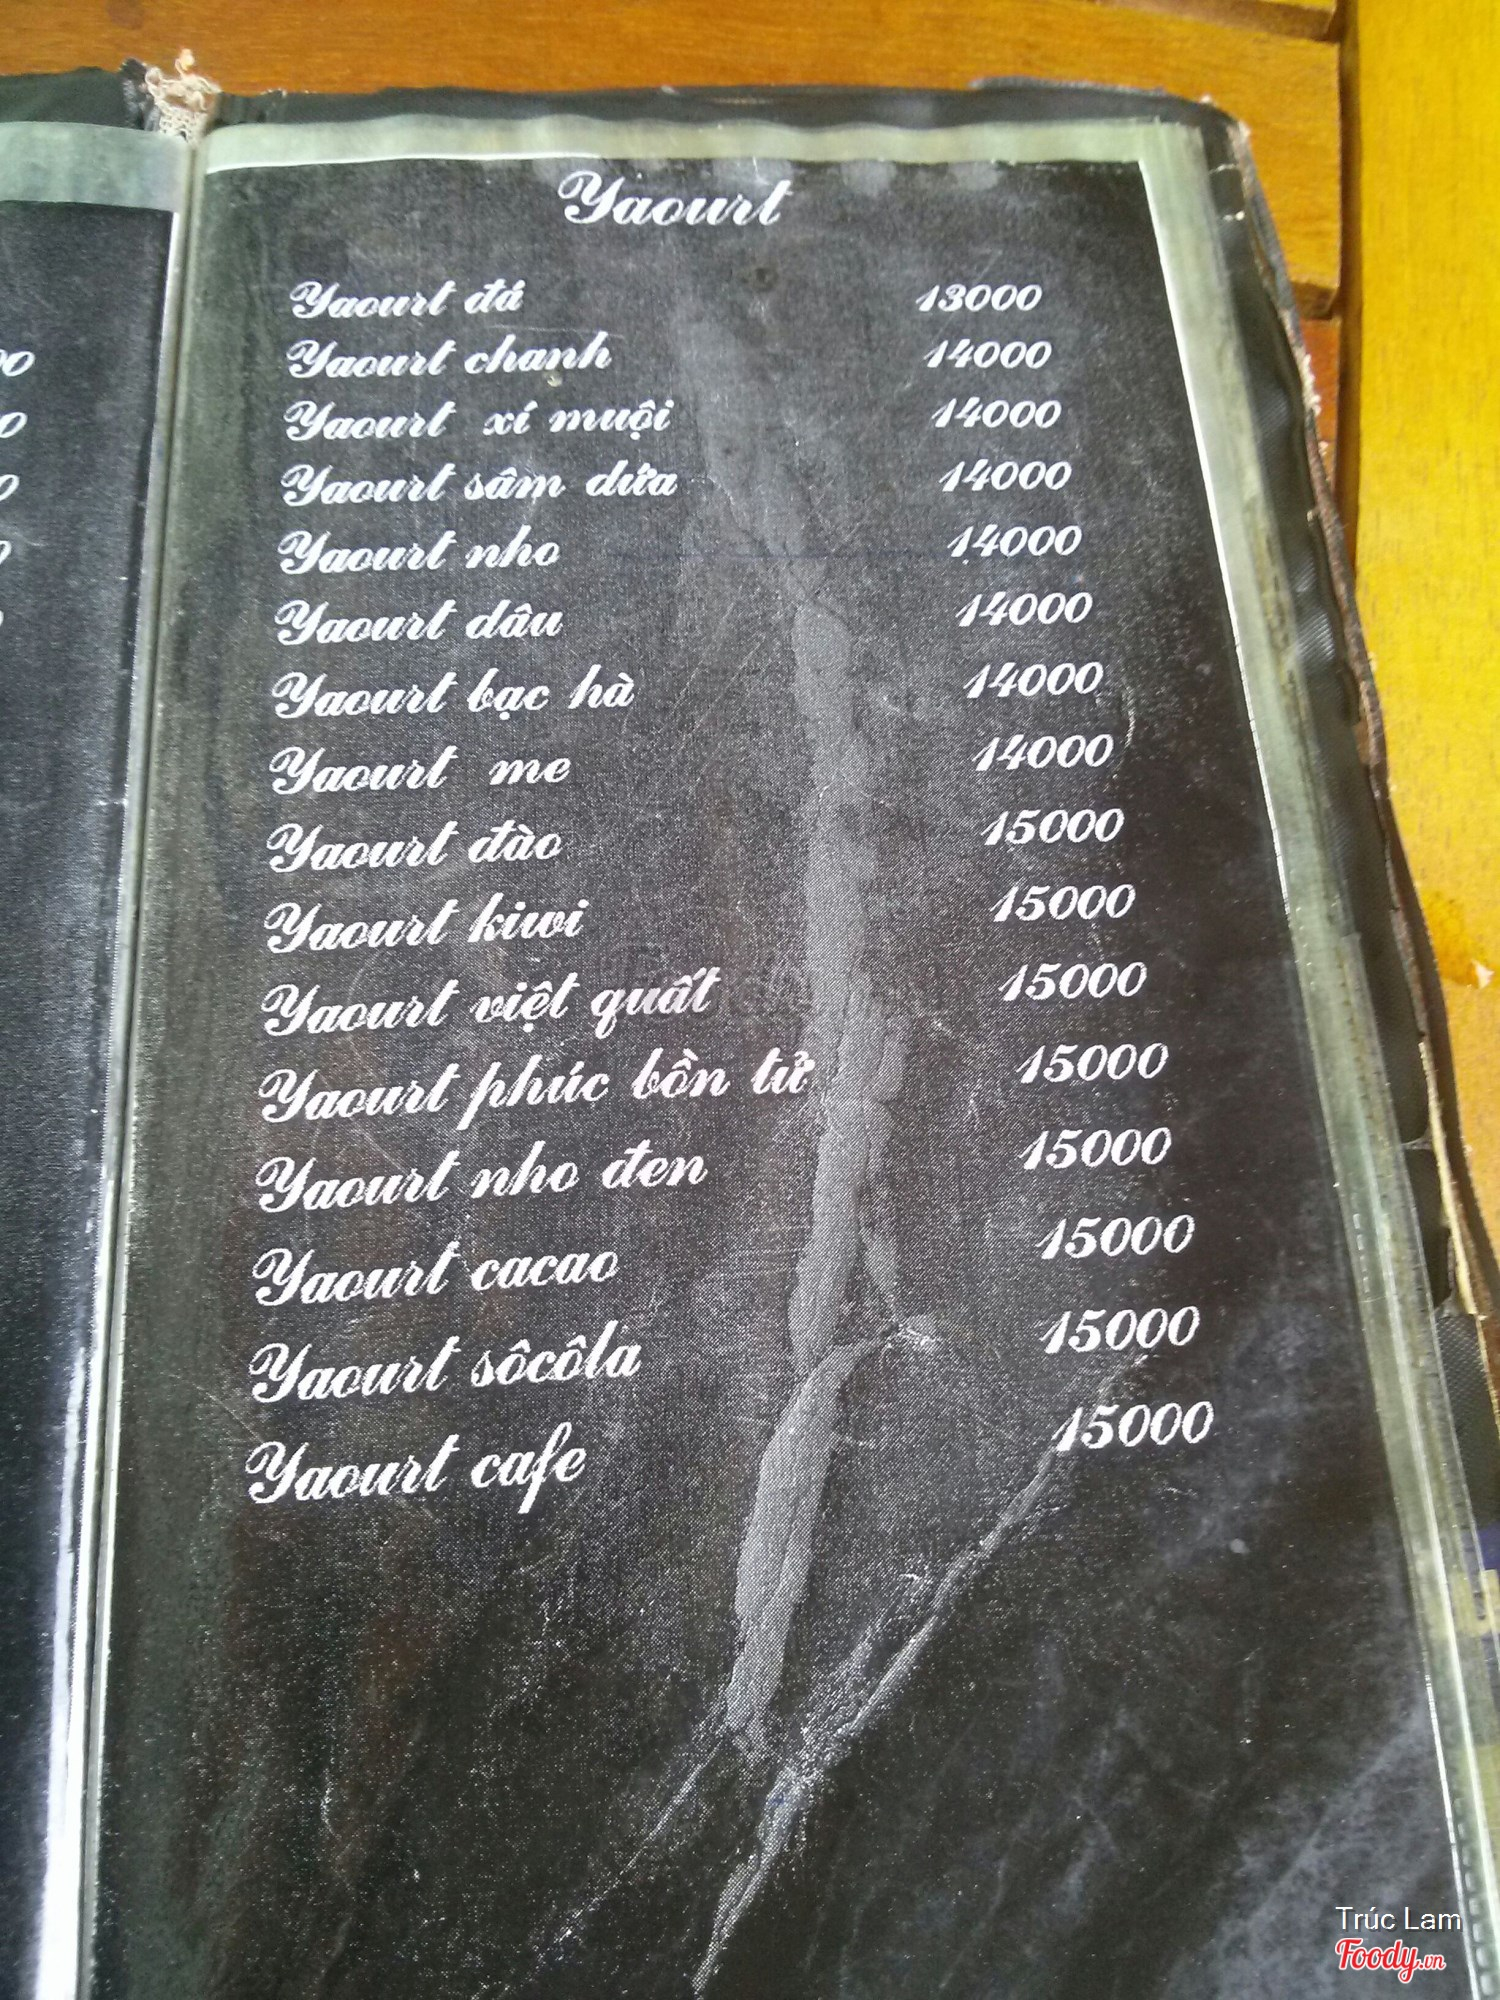 Yaourt
Yaourt đá 13000
Yaourt chanh 14000
Yaourt xí muội 14000
Yaourt sâm dứa 14000
Yaourt nho 14000
Yaourt dâu 14000
Yaourt bạc hà 14000
Yaourt me 14000
Yaourt đào 15000
Yaourt kiwi 15000
Yaourt việt quất 15000
Yaourt phúc bồn tử 15000
Yaourt nho đen 15000
Yaourt cacao 15000
Yaourt sôcôla 15000
Yaourt cafe 15000
Trúc Lam
Foody.vn